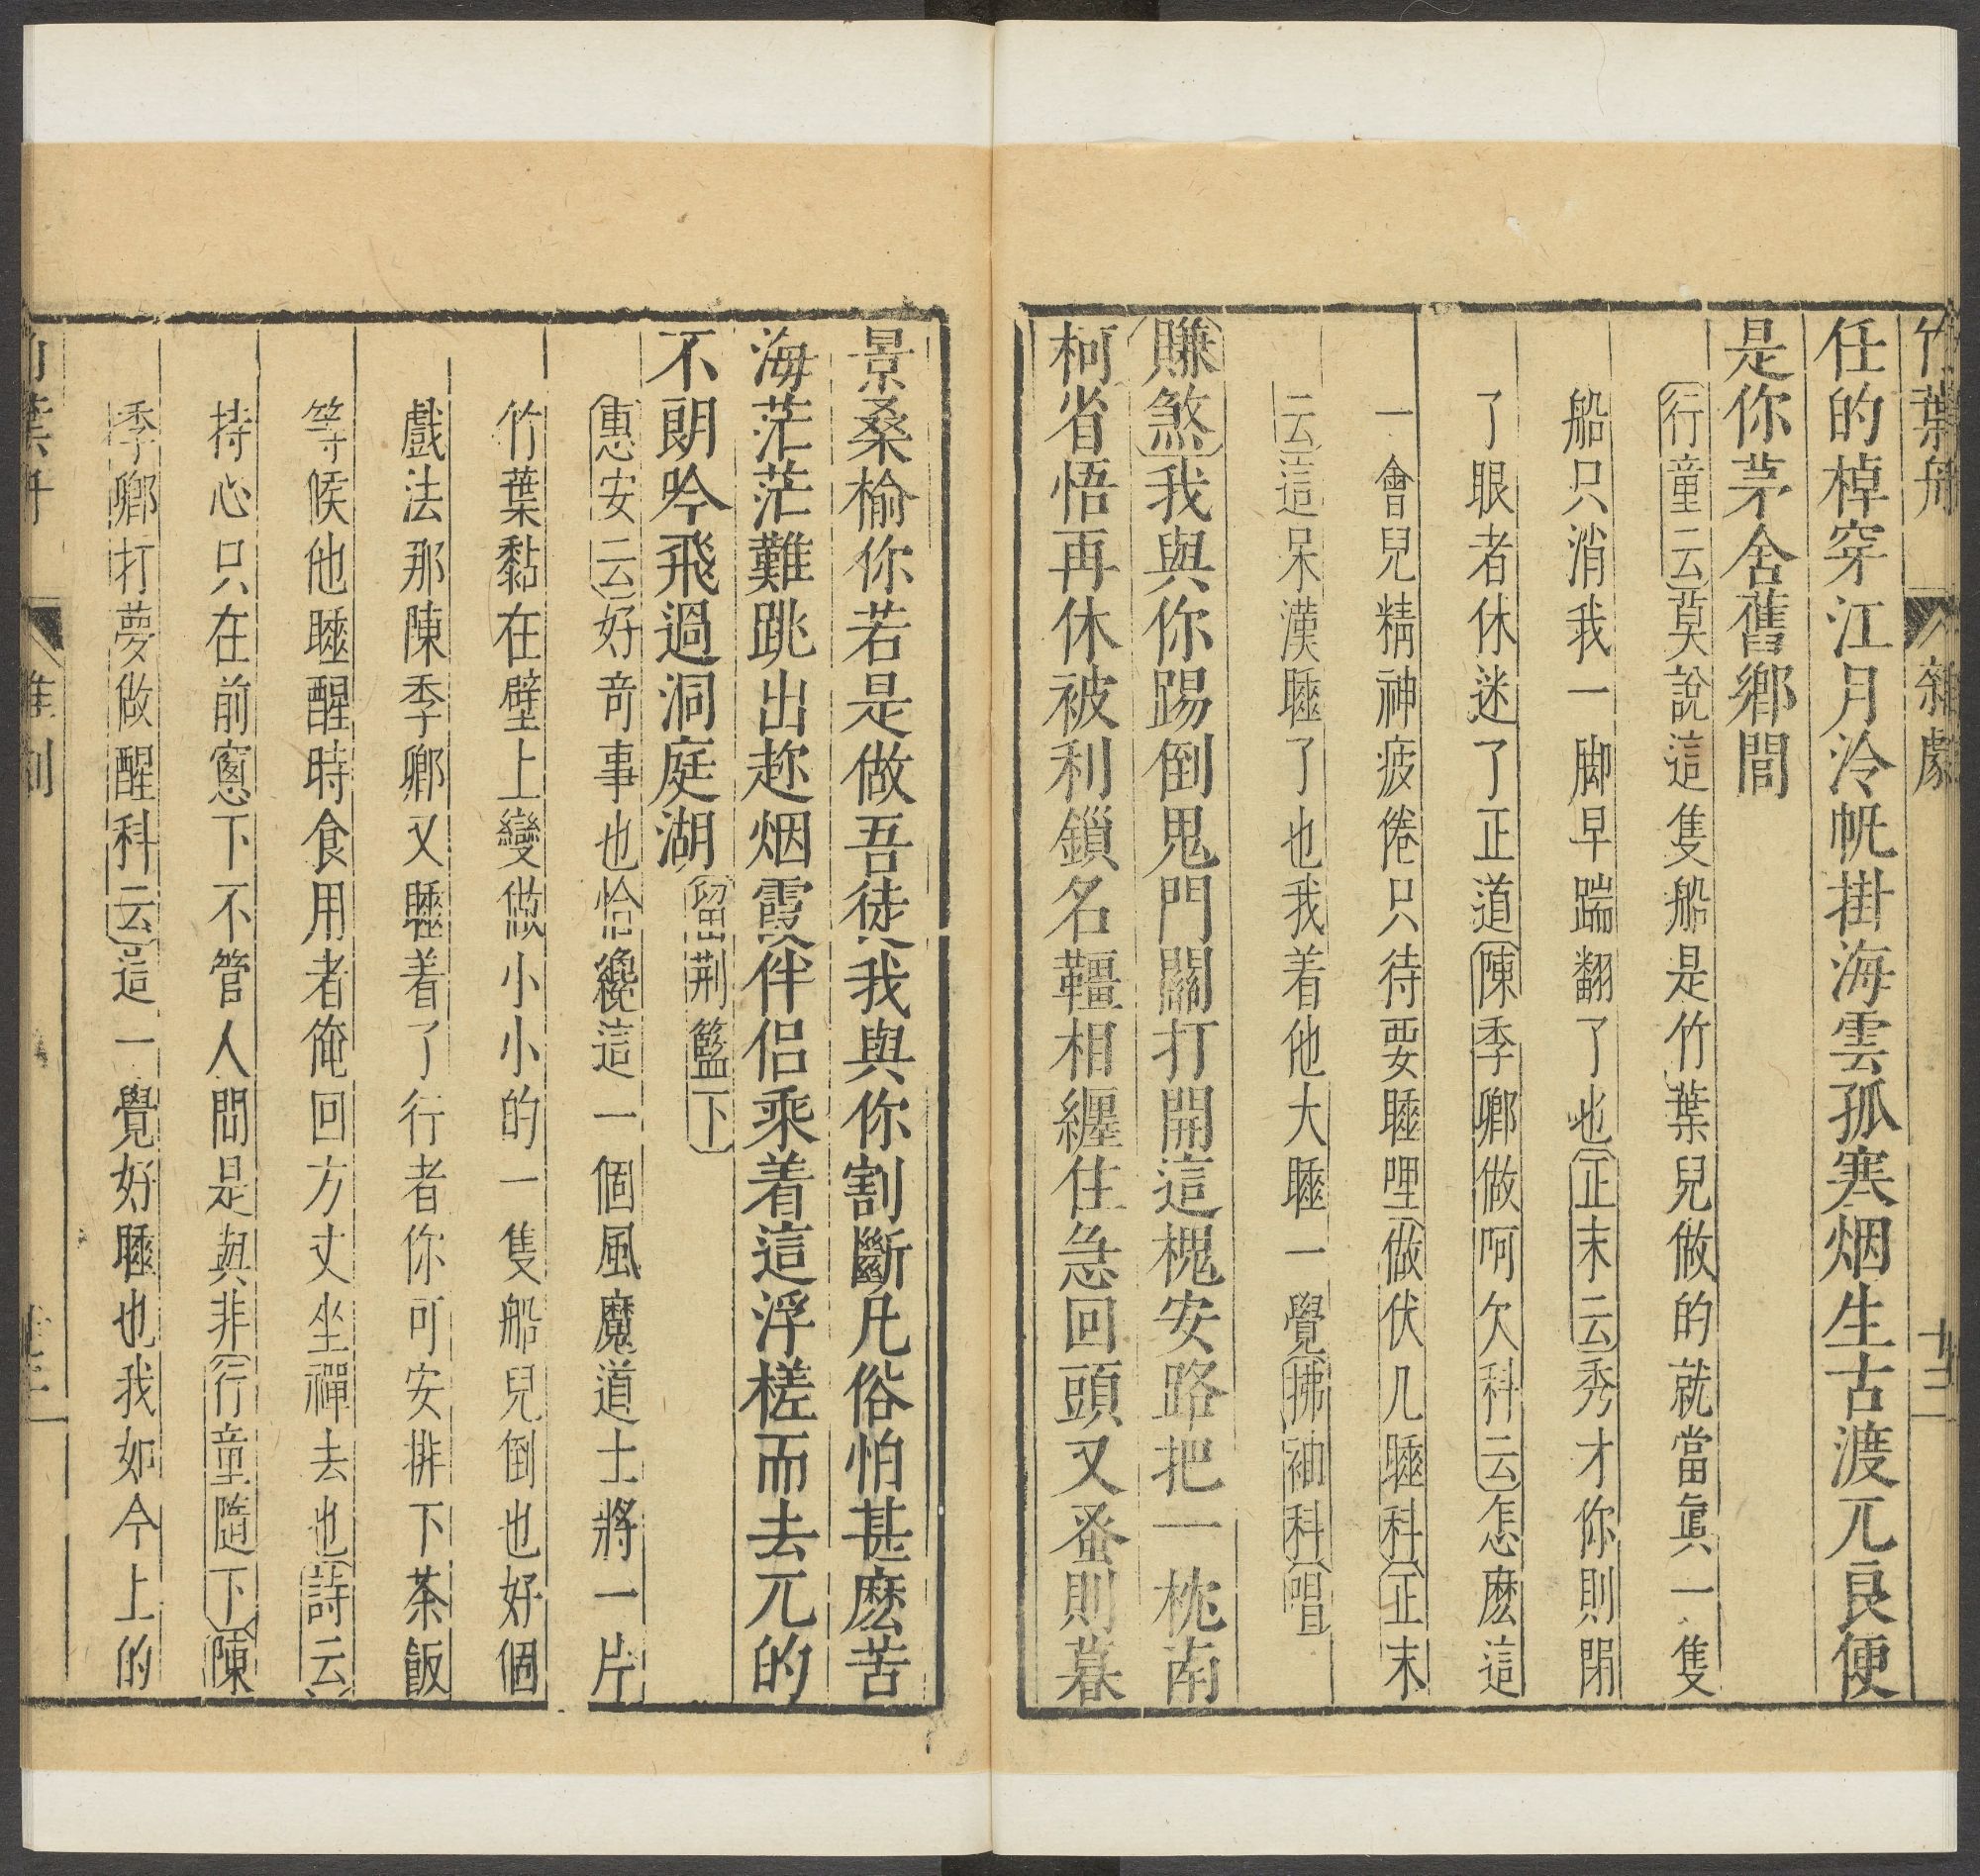 竹葉舟 雜劇 十三
任的棹穿江月冷帆掛海雲孤寒烟生古渡兀良便
是你茅舍舊鄉閭
行童云莫說這隻船是竹葉兒做的就當真一隻
船只消我一脚早踹翻了也正末云秀才你則閉
了眼者休迷了正道陳季卿做呵欠科云怎麽這
一會兒精神疲倦只待要睡哩做伏几睡科正末
云這呆漢睡了也我着他大睡一覺拂袖科唱
賺煞我與你踢倒鬼門關打開這槐安路把一枕南
柯省悟再休被利鎖名韁相纏住急回頭又蚤則暮
景桑榆你若是做吾徒我與你割斷凡俗怕甚麽苦
海茫茫難跳出趂烟霞伴侶乘着這浮槎而去兀的
不朗吟飛過洞庭湖留荆籃下
惠安云好奇事也恰纔這一個風魔道士將一片
竹葉黏在壁上變做小小的一隻船兒倒也好個
戲法那陳季卿又睡着了行者你可安排下茶飯
等候他睡醒時食用者俺回方丈坐禪去也詩云
持心只在前窻下不管人間是與非行童隨下陳
季卿打夢做醒科云這一覺好睡也我如今上的